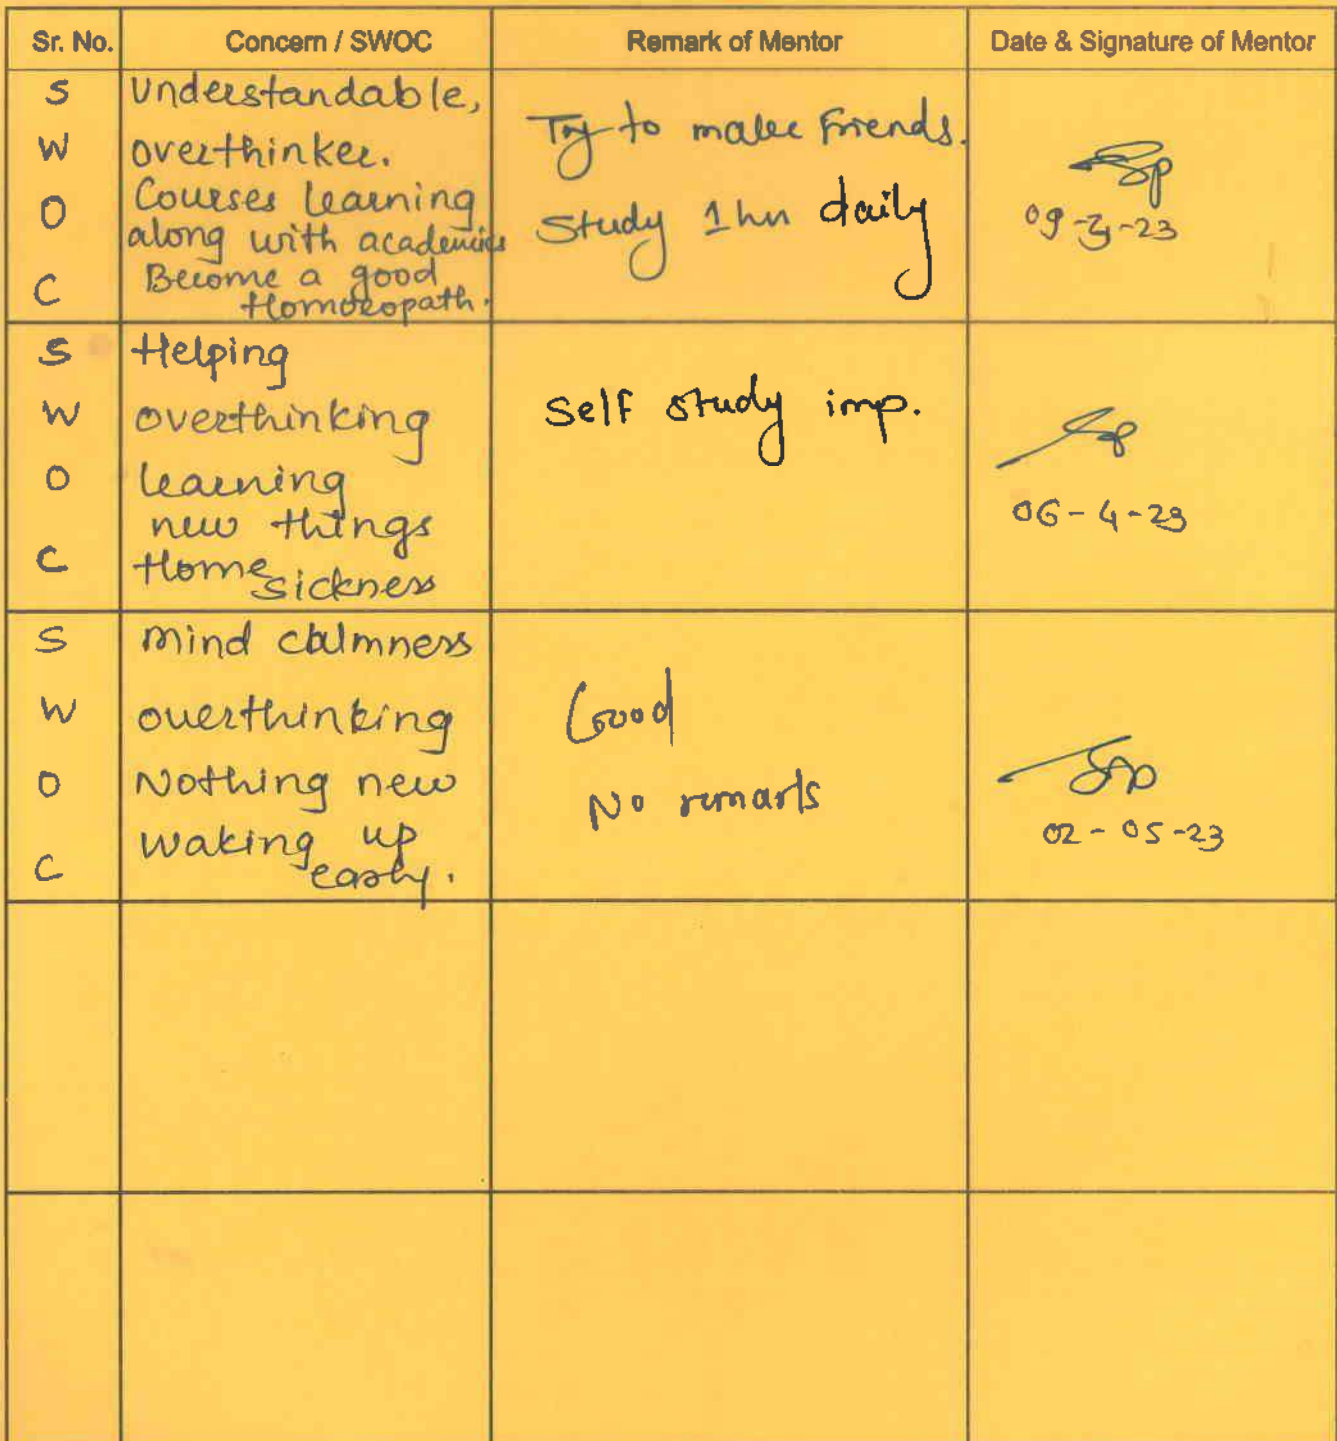 Sr. No. Concern / SWOC Remark of Mentor Date & Signature of Mentor
S Understandable,
W overthinker.
O Courses learning
along with academics
C Become a good
Homoeopath.
Try to make Friends.
Study 1 hr daily
09-3-23
S Helping
W overthinking
O learning
new things
C Home
sickness
Self study imp.
06-4-23
S mind calmness
W overthinking
O Nothing new
C waking up
early.
Good
No remarks
02-05-23